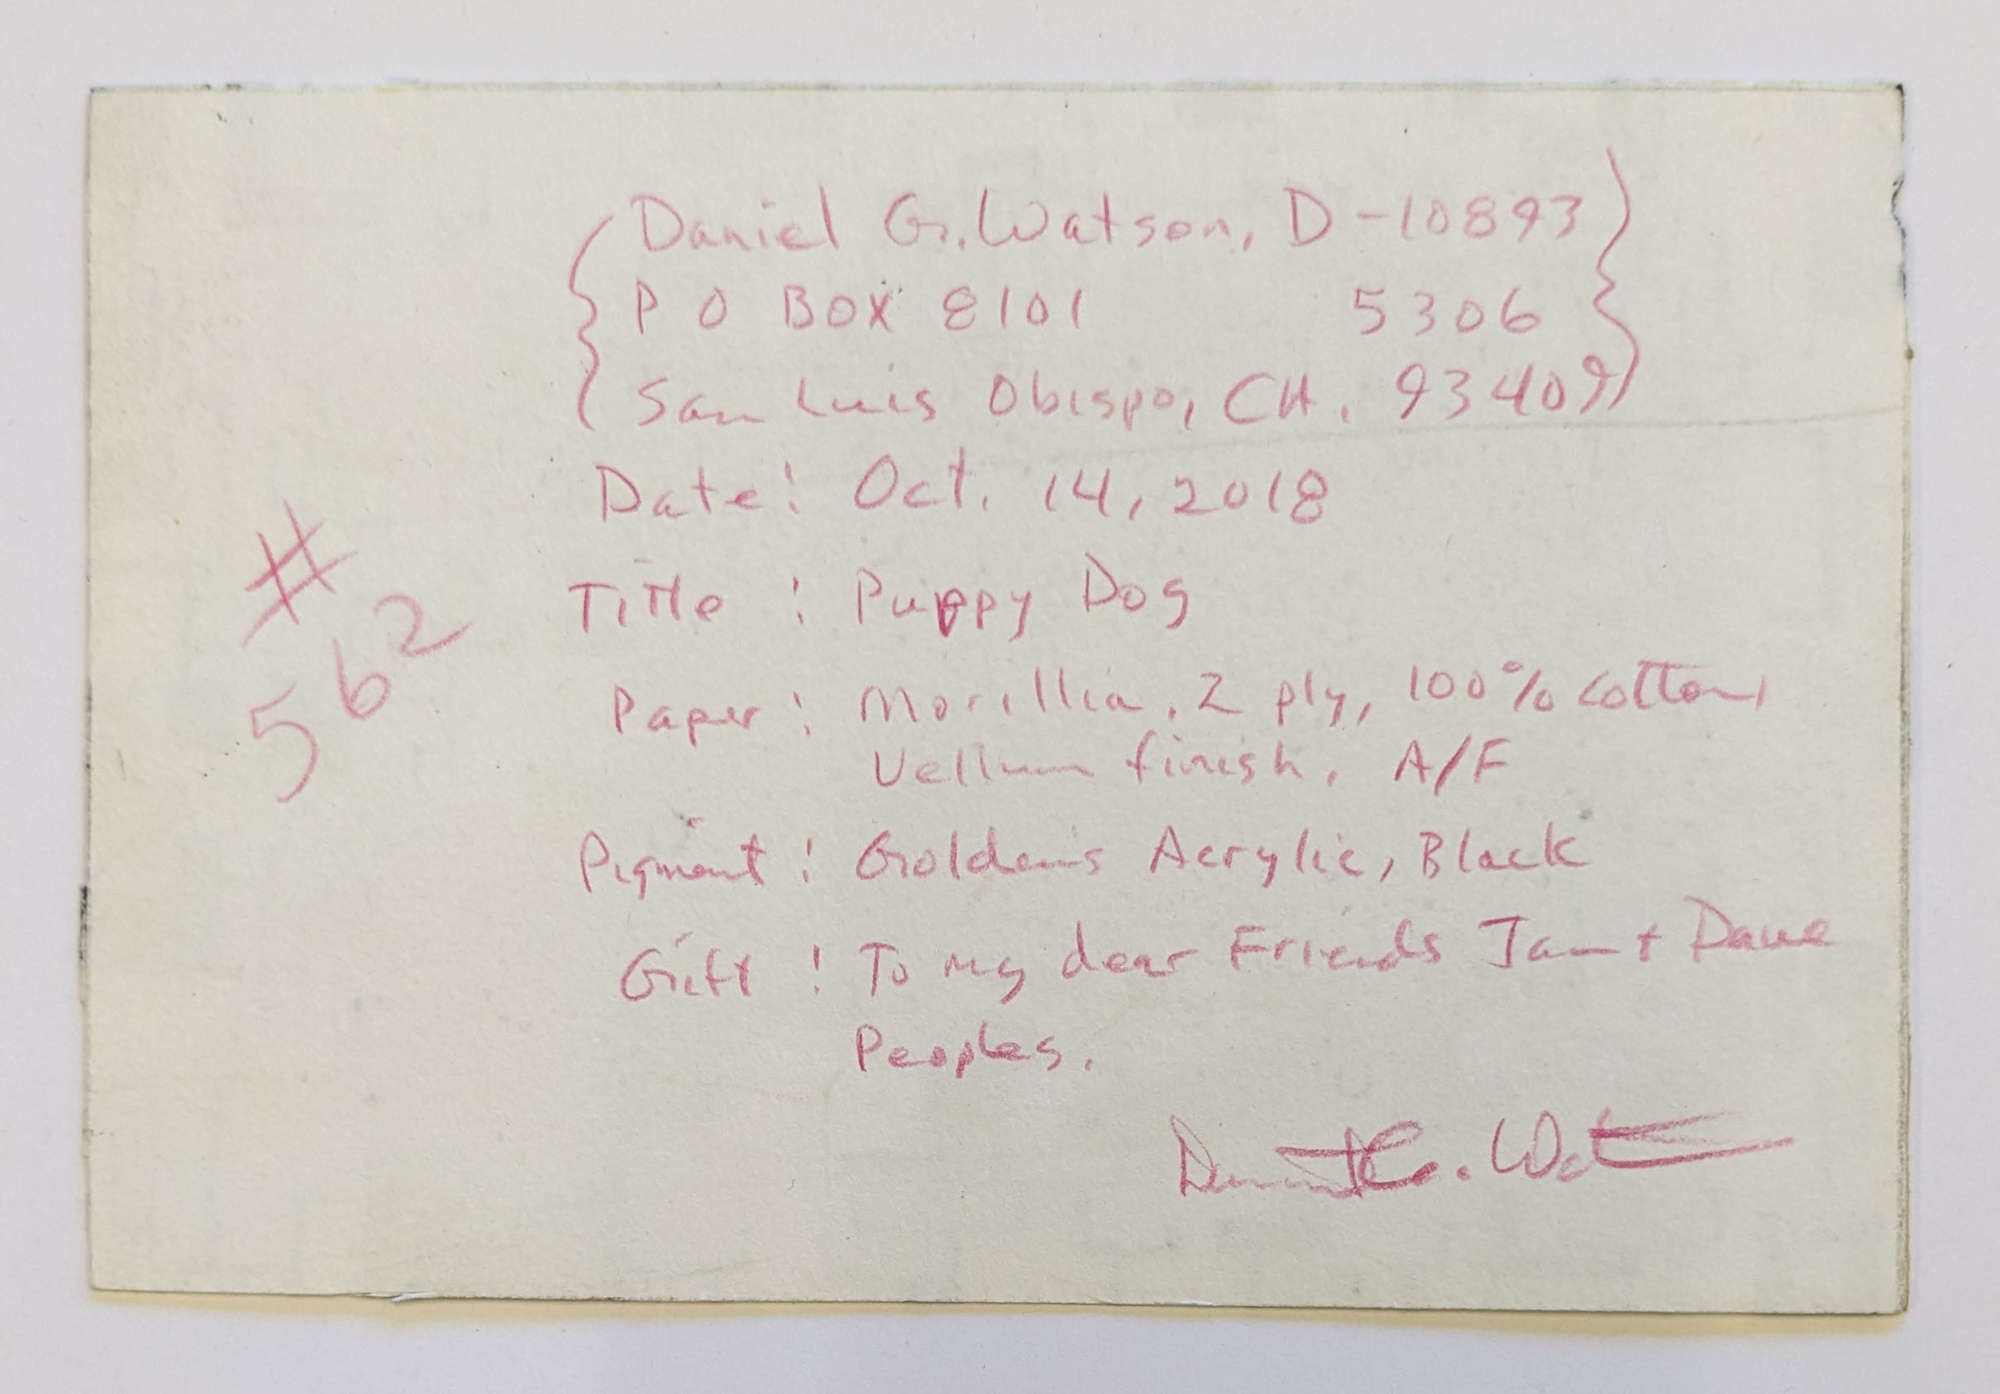 Daniel G. Watson, D-10893
P O BOX 8101 5306
San Luis Obispo, CA. 93409
Date: Oct. 14, 2018
Title: Puppy Dog
#562
Paper: Morillia, 2 ply, 100% cotton,
Vellum finish. A/F
Pigment: Golden's Acrylic, Black
Gift: To my dear Friends Jan + Dave
Peoples.
Daniel G. Watson